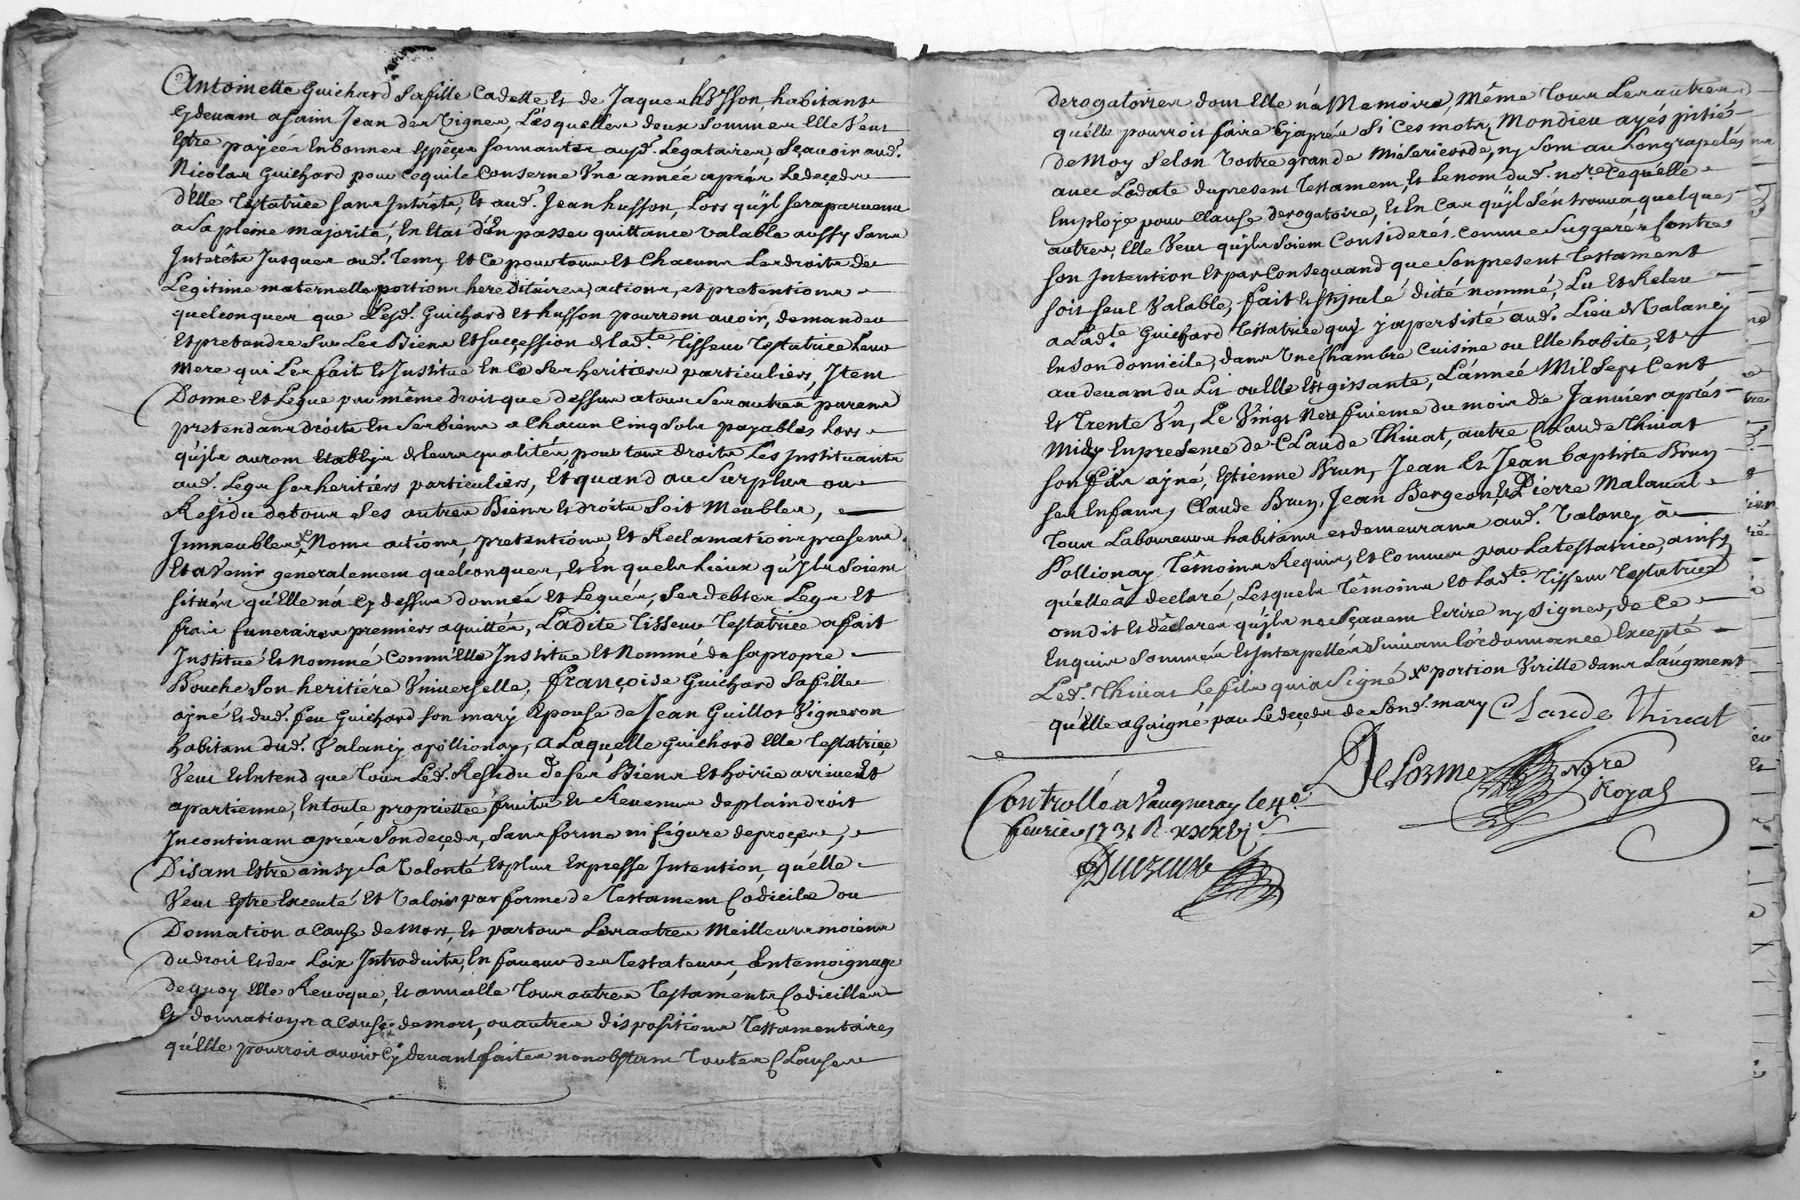 Antoinette Guichard sa fille Cadette et de Jaques hysson, habitant
cy devant a saint Jean des Vignes, Lésquelles deux sommes Elle Veut
Estre payées En bonnes Espéces sonnantes ausd. Legataires, Sçavoir aud.
Nicolas Guichard pour Ce qui le Conserne Une année aprés Le deçeds
d'Elle Testatrice sans Intérêts, Et aud. Jean husson, Lors qu'jl sera parvenu
a Sa pleine majorité, En Etat d'En passer quittance valable aussy sans
Intérêts Jusques aud. Tems, Et Ce pour tous Et Chacuns Les droits de
Légitime maternelle portions hereditaires, actions, et pretentions
quelconques que Lesd. Guichard Et husson pourront avoir, demander
Et pretendre Sur Les Biens Et succession de lad.te Tisseur Testatrice Leur
mere qui Les fait Et Institue En Ce Ses heritiers particuliers, Item
Donne Et Legue par même droit que dessus a tous Ses autres parens
pretendans droits En Ses biens a Chacun Cinq Sols payables Lors
qu'jls auront Etablis de leurs qualités, pour tous droits Les Instituants
aud. Legs Ses heritiers particuliers, Et quand au Surplus ou
Residu de tous Ses autres Biens Et droits Soit Meubles,
Immeubles, Noms actions, pretentions, Et Reclamations presens
Et a Venir generalement quelconques, Et En quels Lieux qu'Jls Soient
situés qu'Elle n'a Cy dessus donnés Et Legués, Ses debtes Legs Et
frais funeraires premiers aquittés, Ladite Tisseur Testatrice a fait
Institué Et Nommé Comm'Elle Institue Et Nomme de sa propre
Bouche Son heritiére Universelle, françoise Guichard Sa fille
ajné Et dud. feu Guichard son mary Epouse de Jean Guillot Vigneron
habitant dud. Valancy apollionay, a Laquelle Guichard Elle Testatrice
Veut Et Entend que Tour Led. Residu de ses Biens Et hoirie arrive Et
apartienne, En toute proprietté fruits Et Revenus de plain droit
Incontinant aprés Son deçeds, Sans forme ni figure de proçes,
Disant Estre ainsy Sa Volonté Et plus Expresse Intention, qu'elle
Veut Estre Executé Et Valoir par forme de Testament Codicile ou
Donnation a cause de Mort, Et par tous Les autres Meilleurs moiens
du droit Et des Loix Introduits, En faveur des Testateurs, En temoignage
de quoy Elle Revoque, Et annulle Tous autres Testaments Codicilles
Et donnations a cause de mort, ou autres dispositions Testamentaires
qu'Elle pourroit avoir Cy devant faites nonobstant Toutes Clauses
derogatoires dont Elle n'a Memoire, Même Tous Les autres
qu'elle pourroit faire Cy aprés Si Ces mots, Mon dieu ayés pitié
de Moy Selon Vostre grande Misericorde, ny Sont au Long rapelés
avec La date du present Testament, Et Le nom dud. no.re Ce qu'Elle
Employe pour Clause derogatoire, Et En Cas qu'jl s'en trouva quelques
autres, Elle Veut qu'jls Soient Considerés Comme Suggerés Contre
Son Intention Et par Consequand que Son present Testament
Soit Seul Valable, fait Et Stipulé dicté nommé, Lu Et Releu
a Lad.te Guichard Testatrice quy j a persisté aud. Lieu de Valancy
En Son domicile, dans Une Chambre Cuisine ou Elle habite, Et
au devant du Lit ou Elle Est gissante, L'année Mil Sept Cent
Et Trente Un, Le Vingt Neufvieme du mois de Janvier aprés
Midy En presence de Claude Thivat, autre Claude Thivat
Son fils ajné, Estienne Brun, Jean Et Jean baptiste Brun
Ses Enfans, Claude Brun, Jean Bergeon, Et Pierre Malaval
Tous Laboureurs habitans et demeurans aud. Valancy â
Pollionay Têmoins Requis, Et Connus par La Testatrice, ainsy
qu'elle â declaré, Lesquels Têmoins Et Lad.te Tisseur Testatrice
ont dit Et dêclaré qu'jls ne Sçavent Ecrire ny Signer, de Ce
Enquis Sommés Et Interpellés Suivant L'ordonnance Excepté
Led. Thivat Le fils qui a Signé X portion Virille dans L'augment
qu'elle a Gaigné par Le deçeds de Sond. mary Claude Thivat
Delorme No.re
Royal
Controllé a Vaugneray le 4e
feurier 1731 R